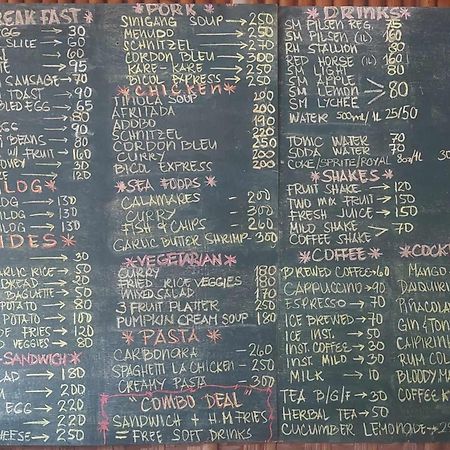 BREAKFAST
EGG → 30
SLICE → 60
→ 60
→ 95
→ 95
SAUSAGE → 70
TOAST → 90
EGG → 65
→ 80
EGG → 90
BEANS → 80
W/ FRUIT → 160
→ 30
→ 120
LOG
LOG → 130
LOG → 130
LOG → 130
SIDES
→ 30
GARLIC RICE → 50
BREAD → 20
BAGUETTE → 50
POTATO → 80
POTATO → 100
FRIES → 120
VEGGIES → 80
-SANDWICH
→ 180
→ 220
EGG → 220
→ 220
CHEESE → 250
PORK
SINIGANG SOUP → 250
MENUDO → 250
SCHNITZEL → 270
CORDON BLEU → 300
KARE-KARE → 250
BICOL EXPRESS → 250
CHICKEN
TINOLA SOUP 200
AFRITADA 200
ADOBO 190
SCHNITZEL 200
CORDON BLEU 250
CURRY 200
BICOL EXPRESS 200
SEA FOODS
CALAMARES - 200
CURRY - 300
FISH & CHIPS - 260
GARLIC BUTTER SHRIMP - 300
VEGETARIAN
CURRY 180
FRIED RICE VEGGIES 180
MIXED SALAD 170
3 FRUIT PLATTER 250
PUMPKIN CREAM SOUP 180
PASTA
CARBONARA - 260
SPAGHETTI LA CHICKEN - 250
CREAMY PASTA - 300
"COMBO DEAL"
SANDWICH + H.M FRIES
= FREE SOFT DRINKS
DRINKS
SM PILSEN REG. 75
SM PILSEN (1L) 160
RH STALLION 80
RED HORSE (1L) 160
SM LIGHT 80
SM LEMON > 80
SM LYCHEE
WATER 500ml/1L 25/50
TONIC WATER 70
SODA WATER 70
COKE/SPRITE/ROYAL 8oz/1L
SHAKES
FRUIT SHAKE → 120
TWO MIX FRUIT → 150
FRESH JUICE → 150
MILD SHAKE > 70
COFFEE SHAKE
COFFEE
BREWED COFFEE → 60
CAPPUCCINO → 90
ESPRESSO → 70
ICE BREWED → 70
ICE INST. → 50
INST. COFFEE → 30
INST. MILD → 30
MILK → 10
TEA B/G/F → 30
HERBAL TEA → 50
CUCUMBER LEMONADE →
COCK
MANGO
DAIQUIRI
PIÑACOLA
GIN & TON
CAIPIRIN
RUM CO
BLOODY MA
COFFEE K